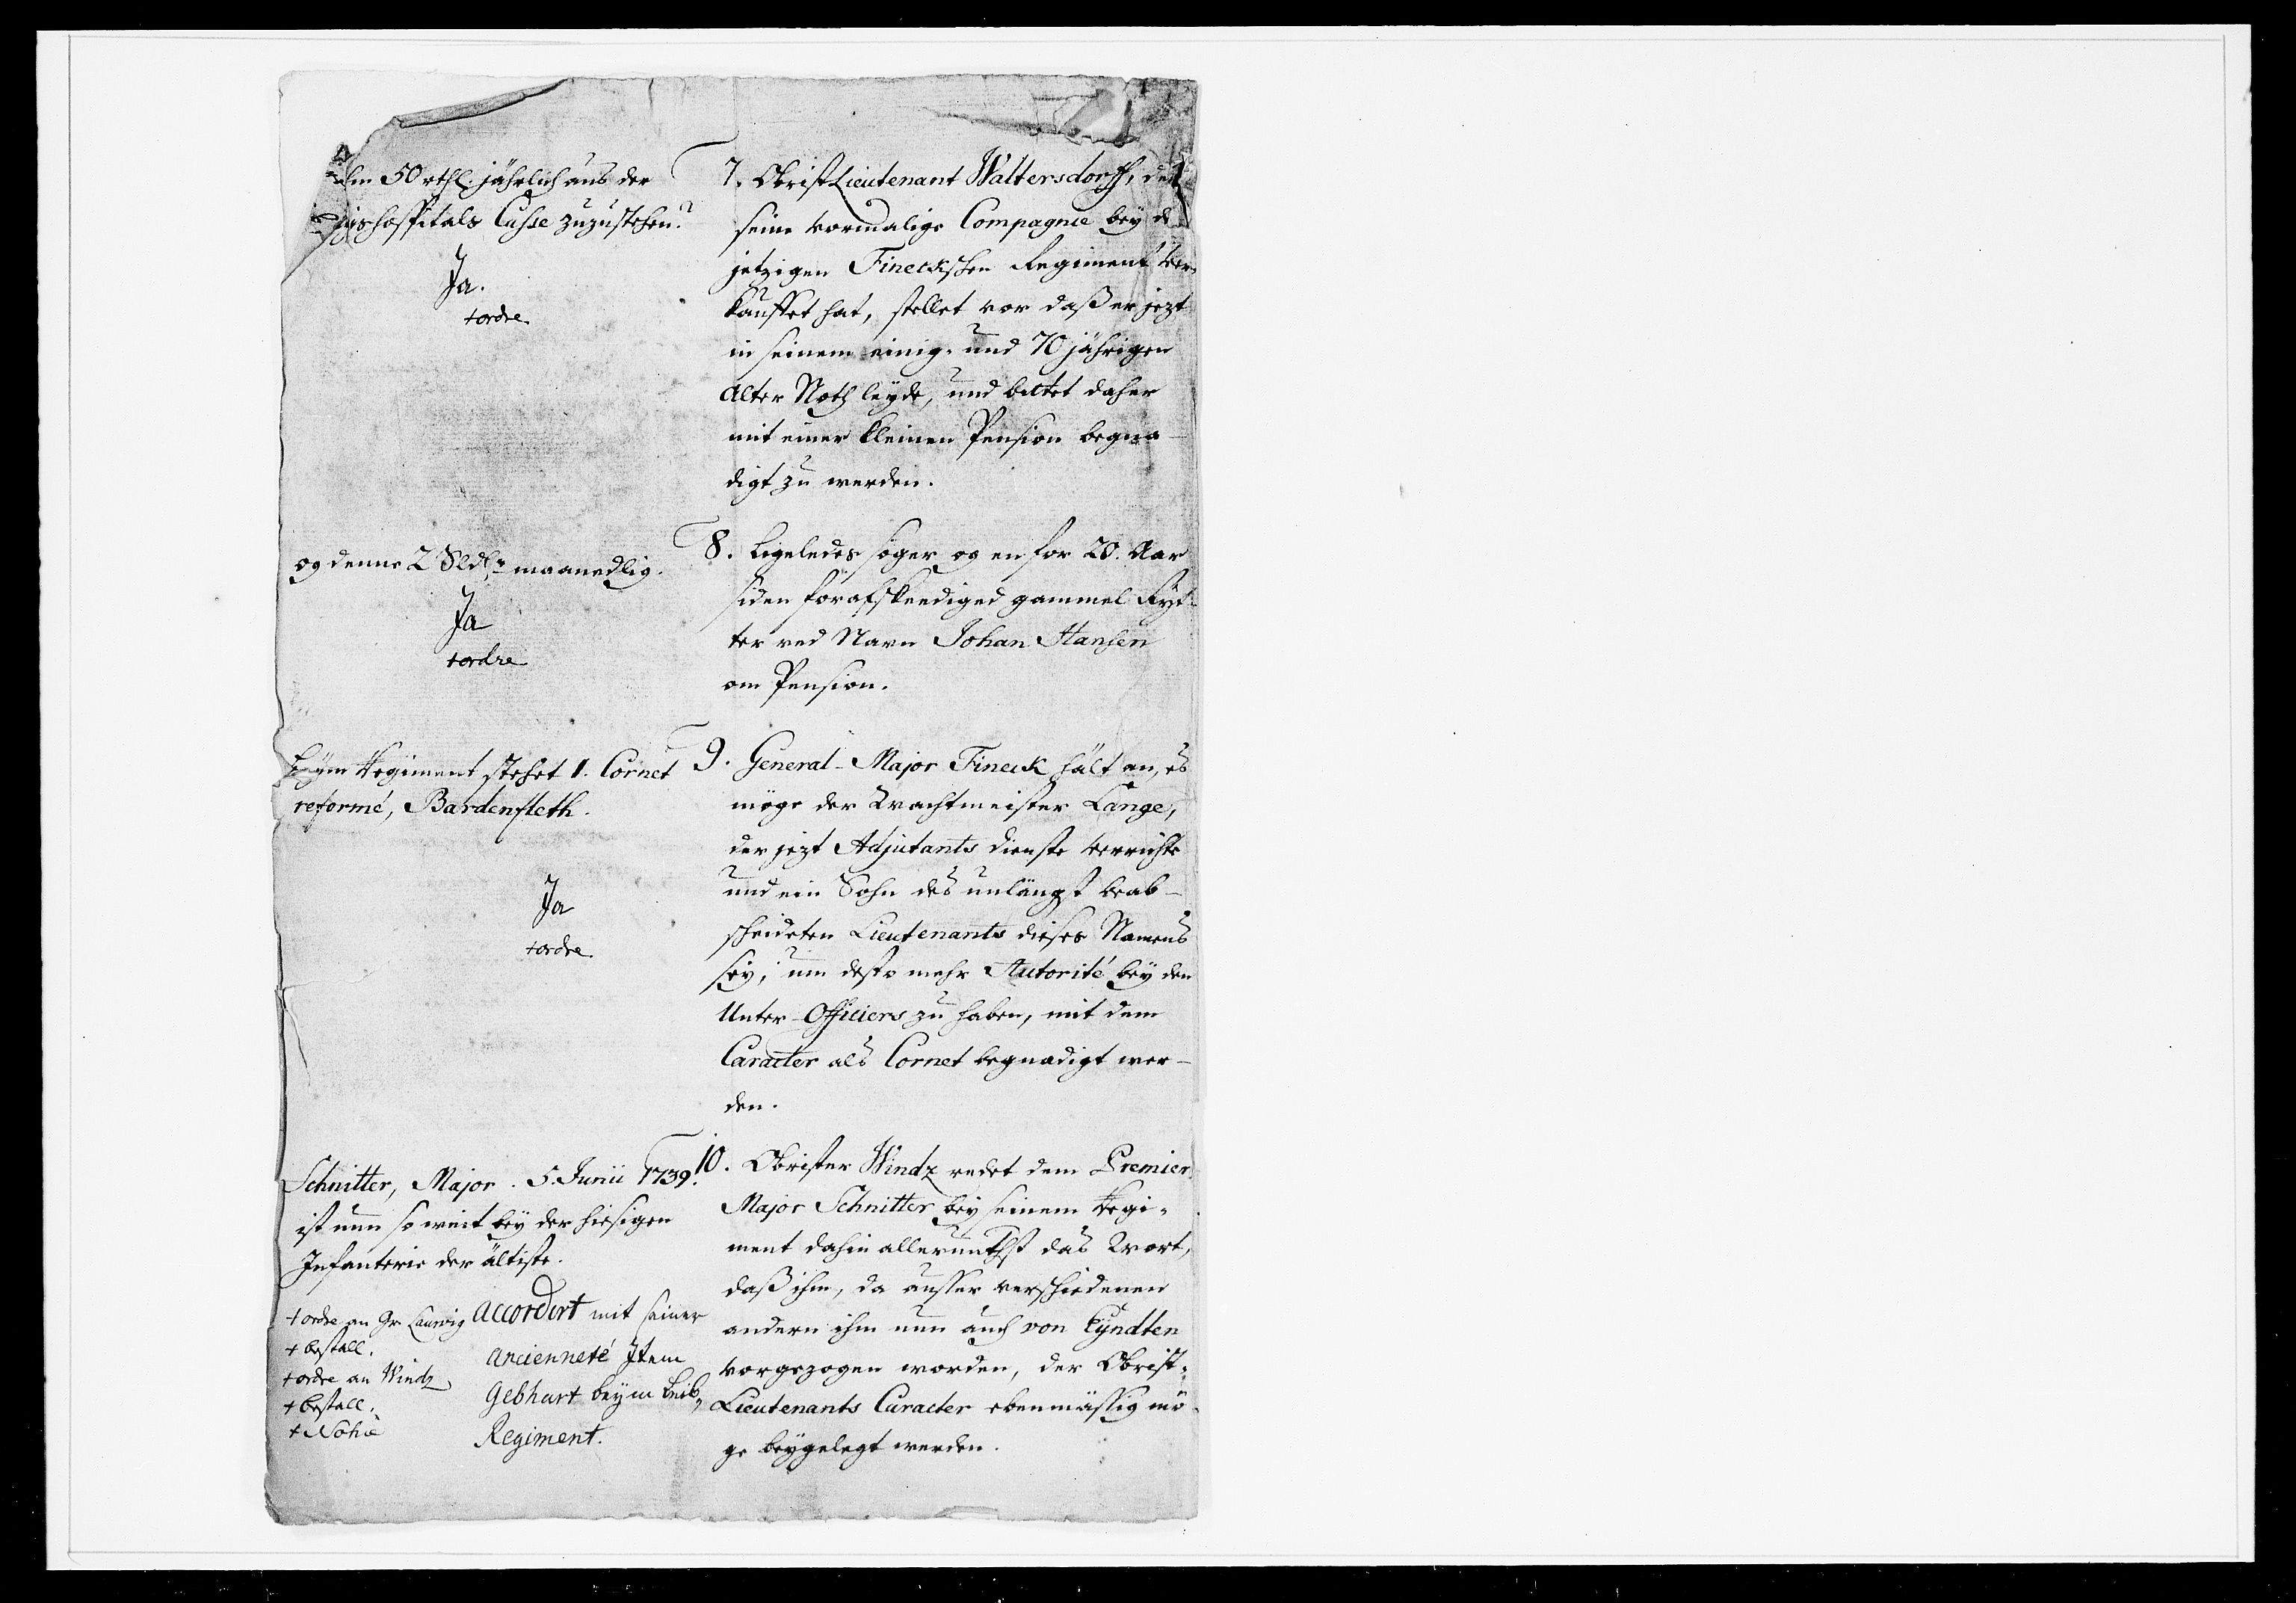 ihm 50 rthl. jährlich aus der
hospitals Casse zuzustehen?
Ja.
+ordre
7. ObristLieutenant Waltersdorff, der
seine vormalige Compagnie bey d
jetzigen Fineckschen Regiment ver-
kauffet hat, stellet vor daß er jezt
in seinem einig- und 70 jährigen
Alter Noth leyde, und bittet daher
mit einer kleinen Pension begna-
digt zu werden.
og denne 2 Sldl. maanedlig.
Ja
+ordre
8. Ligeledes søger og en for 20. Aar
siden forafskeediged gammel Ryt-
ter ved Navn Johan Hansen
om Pension.
Beym Regiment stehet 1. Cornet
reformé, Bardenfleth.
Ja
+ordre
9. General-Major Fineck hält an, es
möge der Wachtmeister Lange,
der jezt Adjutants dienste verrichte
und ein Sohn des unlängst verab-
scheideten Lieutenants dieses Namens
sey, um desto mehr Autorité bey den
Unter-Officiers zu haben, mit dem
Caracter als Cornet begnadigt wer-
den.
Schnitter, Major. 5. Junii 1739.
ist nun so weit bey der hiesigen
Infanterie der ältiste.
accordirt mit seiner
ancienneté Item
Gebhart beym Leib-
Regiment.
+ ordre an Gr. Laurvig
+ bestall.
+ ordre an Windz
+ bestall.
+
10. Obrister Windz redet dem Premier
Major Schnitter bey seinem Regi-
ment dahin allerunthst das Wort,
daß ihm, da ausser verschiedenen
andern ihm nun auch von Eyndten
vorgezogen worden, der Obrist-
Lieutenants Caracter ebenmässig mö-
ge beygelegt werden.